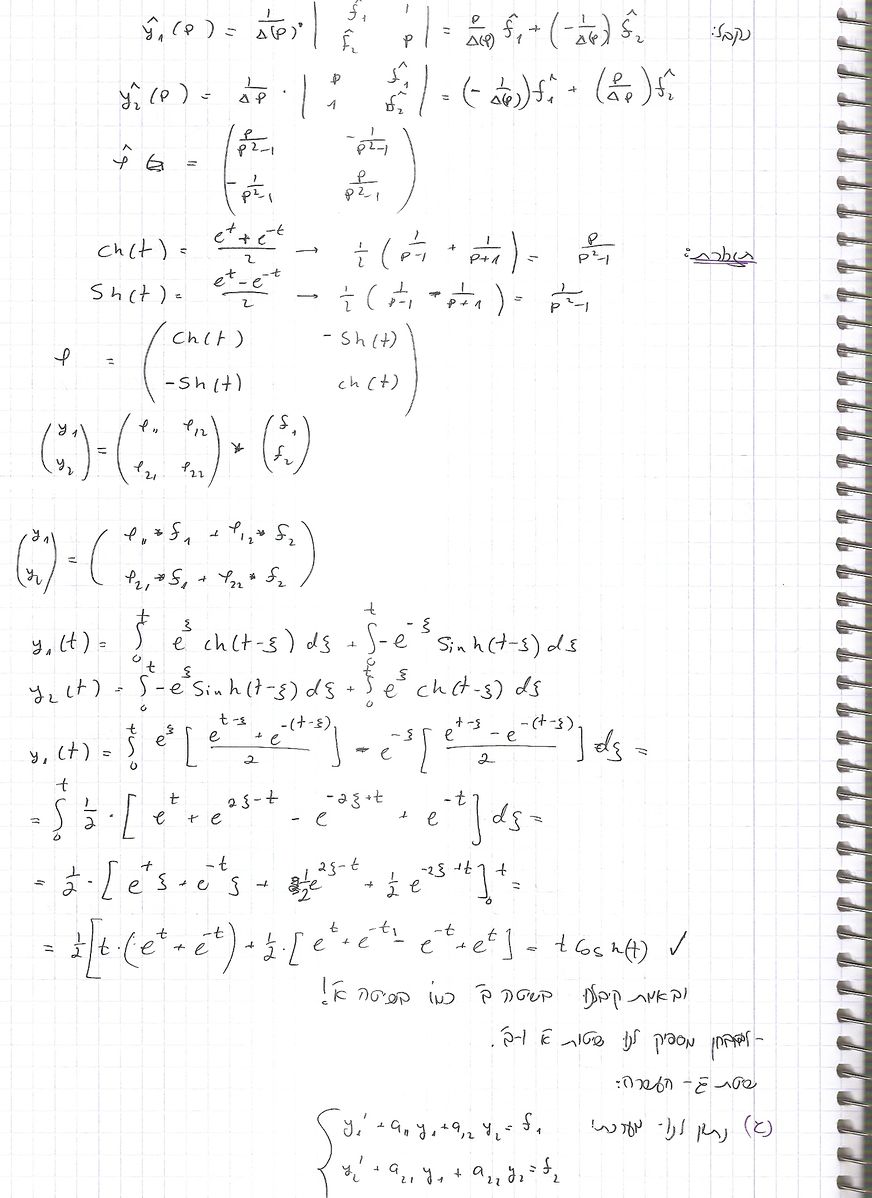 נקבל: ŷ₁(p) = 1/Δ(p) · | f̂₁ 1 ; f̂₂ p | = p/Δ(p) f̂₁ + (-1/Δ(p)) f̂₂
ŷ₂(p) = 1/Δp · | p f̂₁ ; 1 f̂₂ | = (-1/Δ(p)) f̂₁ + (p/Δp) f̂₂
φ̂ = ( p/(p²-1) -1/(p²-1) ; -1/(p²-1) p/(p²-1) )
תזכורת: ch(t) = (e^t + e^-t)/2 → 1/2 ( 1/(p-1) + 1/(p+1) ) = p/(p²-1)
Sh(t) = (e^t - e^-t)/2 → 1/2 ( 1/(p-1) - 1/(p+1) ) = 1/(p²-1)
φ = ( ch(t) -Sh(t) ; -Sh(t) ch(t) )
( y₁ ; y₂ ) = ( φ₁₁ φ₁₂ ; φ₂₁ φ₂₂ ) * ( f₁ ; f₂ )
( y₁ ; y₂ ) = ( φ₁₁ * f₁ + φ₁₂ * f₂ ; φ₂₁ * f₁ + φ₂₂ * f₂ )
y₁(t) = ∫₀^t e^ξ ch(t-ξ) dξ + ∫₀^t -e^-ξ Sinh(t-ξ) dξ
y₂(t) = ∫₀^t -e^ξ Sinh(t-ξ) dξ + ∫₀^t e^ξ ch(t-ξ) dξ
y₁(t) = ∫₀^t e^ξ [ (e^(t-ξ) + e^-(t-ξ))/2 ] - e^-ξ [ (e^(t-ξ) - e^-(t-ξ))/2 ] dξ =
= ∫₀^t 1/2 · [ e^t + e^(2ξ-t) - e^(-2ξ+t) + e^-t ] dξ =
= 1/2 · [ e^t ξ + e^-t ξ + 1/2 e^(2ξ-t) + 1/2 e^(-2ξ+t) ]₀^t =
= 1/2 [ t · (e^t + e^-t) + 1/2 · [ e^t + e^-t - e^-t + e^t ] = t Cosh(t) ✓
ובאמת קיבלנו בשיטה ב' כמו בשיטה א'!
-למבחן מספיק לנו שיטות א' ו-ב'.
שיטה ג' - העשרה:
(ג) נתון לנו מערכת: { y₁' + a₁₁ y₁ + a₁₂ y₂ = f₁
y₂' + a₂₁ y₁ + a₂₂ y₂ = f₂